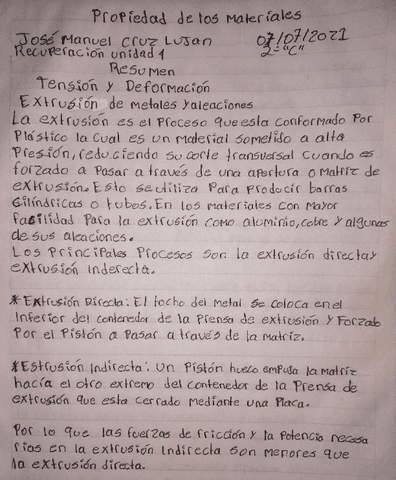 Propiedad de los Materiales
José Manuel Cruz Lujan 07/07/2021
Recuperación unidad 1 2-"C"
Resumen
Tensión y Deformación
Extrusión de metales y aleaciones
La extrusión es el Proceso que esta conformado Por
Plástico la cual es un material sometido a alta
Presión, reduciendo su corte transversal cuando es
forzado a Pasar a través de una apertura o Matriz de
extrusión. Esto se utiliza Para Producir barras
Cilíndricas o tubos. En los materiales con mayor
Facilidad Para la extrusión como aluminio, cobre y algunas
de sus aleaciones.
Los Principales Procesos son la extrusión directa y
extrusión inderecta.
* Extrusión Directa: El tocho del metal se coloca en el
Inferior del contenedor de la Prensa de extrusión y Forzado
Por el Pistón a Pasar a través de la matriz.
* Estrusión Indirecta: Un Pistón hueco empuja la matriz
hacía el otro extremo del contenedor de la Prensa de
extrusión que esta cerrado mediante una Placa.
Por lo que las fuerzas de fricción y la Potencia necesa
rias en la extrusión Indirecta son menores que
la extrusión directa.